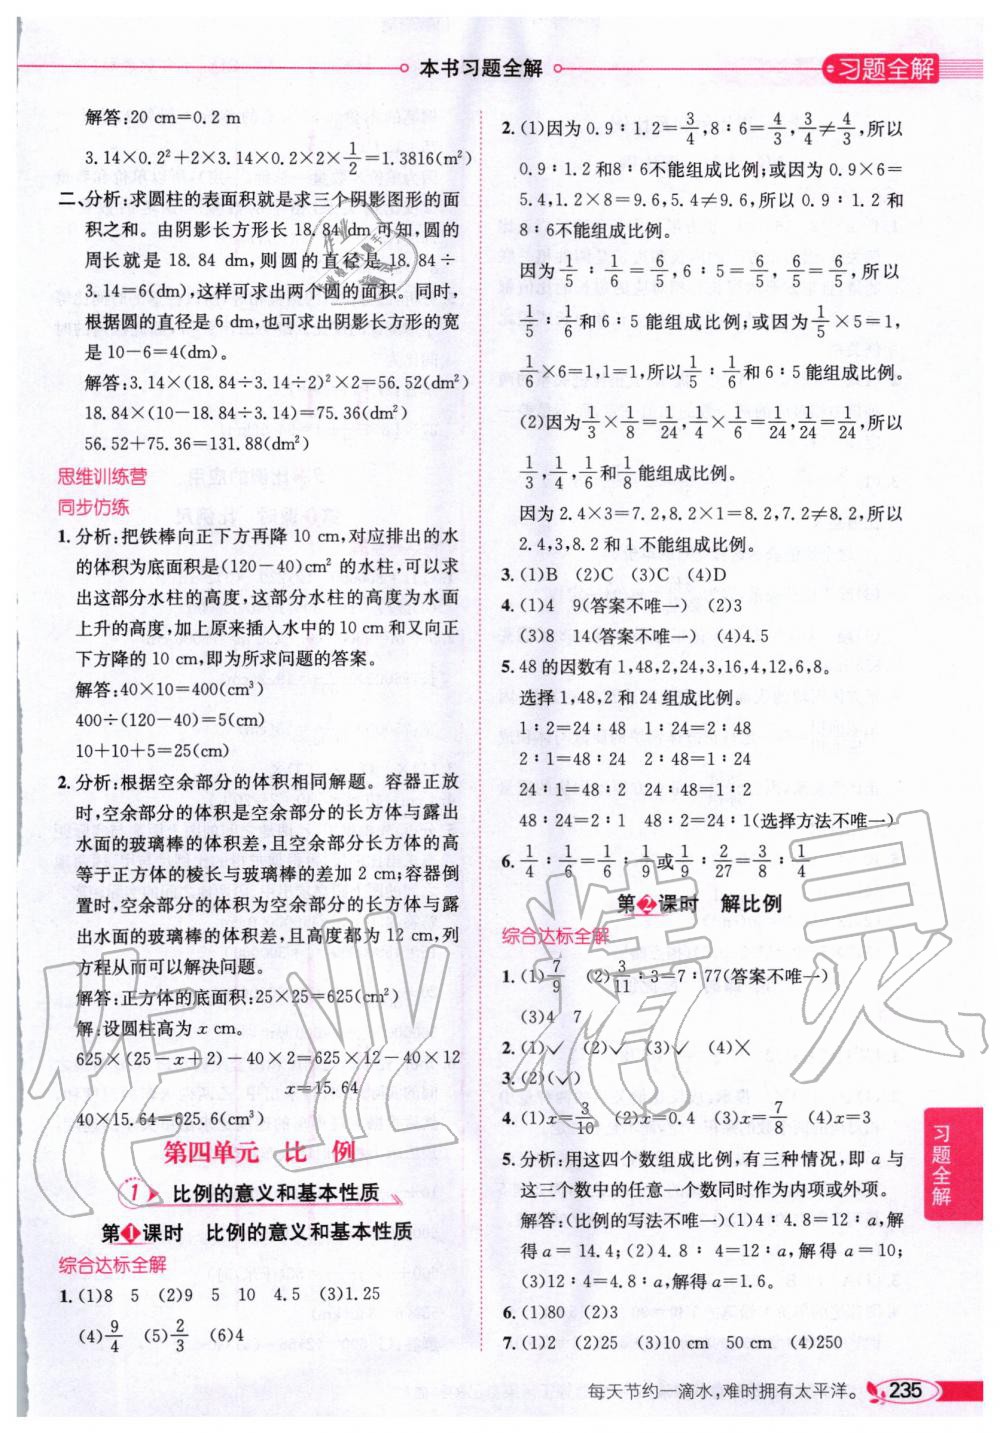 本书习题全解
习题全解
解答:20 cm=0.2 m
3.14×0.2²+2×3.14×0.2×2×1/2=1.3816(m²)
二、分析:求圆柱的表面积就是求三个阴影图形的面
积之和。由阴影长方形长 18.84 dm 可知,圆的
周长就是 18.84 dm,则圆的直径是 18.84÷
3.14=6(dm),这样可求出两个圆的面积。同时,
根据圆的直径是 6 dm,也可求出阴影长方形的宽
是 10-6=4(dm)。
解答:3.14×(18.84÷3.14÷2)²×2=56.52(dm²)
18.84×(10-18.84÷3.14)=75.36(dm²)
56.52+75.36=131.88(dm²)
思维训练营
同步仿练
1.分析:把铁棒向正下方再降 10 cm,对应排出的水
的体积为底面积是(120-40)cm² 的水柱,可以求
出这部分水柱的高度,这部分水柱的高度为水面
上升的高度,加上原来插入水中的 10 cm 和又向正
下方降的 10 cm,即为所求问题的答案。
解答:40×10=400(cm³)
400÷(120-40)=5(cm)
10+10+5=25(cm)
2.分析:根据空余部分的体积相同解题。容器正放
时,空余部分的体积是空余部分的长方体与露出
水面的玻璃棒的体积差,且空余部分长方体的高
等于正方体的棱长与玻璃棒的差加 2 cm;容器倒
置时,空余部分的体积为空余部分的长方体与露
出水面的玻璃棒的体积差,且高度都为 12 cm,列
方程从而可以解决问题。
解答:正方体的底面积:25×25=625(cm²)
解:设圆柱高为 x cm。
625×(25-x+2)-40×2=625×12-40×12
x=15.64
40×15.64=625.6(cm³)
第四单元 比 例
1 比例的意义和基本性质
第1课时 比例的意义和基本性质
综合达标全解
1.(1)8 5 (2)9 5 10 4.5 (3)1.25
(4)9/4 (5)2/3 (6)4
2.(1)因为 0.9∶1.2=3/4,8∶6=4/3,3/4≠4/3,所以
0.9∶1.2 和8∶6不能组成比例;或因为 0.9×6=
5.4,1.2×8=9.6,5.4≠9.6,所以 0.9∶1.2 和
8∶6不能组成比例。
因为1/5∶1/6=6/5,6∶5=6/5,6/5=6/5,所以
1/5∶1/6和 6∶5 能组成比例;或因为1/5×5=1,
1/6×6=1,1=1,所以1/5∶1/6和 6∶5 能组成比例。
(2)因为1/3×1/8=1/24,1/4×1/6=1/24,1/24=1/24,所以
1/3,1/4,1/6和1/8能组成比例。
因为 2.4×3=7.2,8.2×1=8.2,7.2≠8.2,所以
2.4,3,8.2 和 1 不能组成比例。
3.(1)B (2)C (3)C (4)D
4.(1)4 9(答案不唯一) (2)3
(3)8 14(答案不唯一) (4)4.5
5.48 的因数有 1,48,2,24,3,16,4,12,6,8。
选择 1,48,2 和 24 组成比例。
1∶2=24∶48 1∶24=2∶48
2∶1=48∶24 2∶48=1∶24
24∶1=48∶2 24∶48=1∶2
48∶24=2∶1 48∶2=24∶1(选择方法不唯一)
6.1/4∶1/6=1/6∶1/9或1/9∶2/27=3/8∶1/4
第2课时 解比例
综合达标全解
1.(1)7/9 (2)3/11∶3=7∶77(答案不唯一)
(3)4 7
2.(1)√ (2)√ (3)√ (4)×
3.(2)(√)
4.(1)x=3/10 (2)x=0.4 (3)x=7/8 (4)x=3
5.分析:用这四个数组成比例,有三种情况,即 a 与
这三个数中的任意一个数同时作为内项或外项。
解答:(比例的写法不唯一)(1)4∶4.8=12∶a,解
得 a=14.4;(2)4.8∶4=12∶a,解得 a=10;
(3)12∶4=4.8∶a,解得 a=1.6。
6.(1)80 (2)3
7.(1)2 (2)25 (3)10 cm 50 cm (4)250
习题全解
每天节约一滴水,难时拥有太平洋。
235
作业精灵